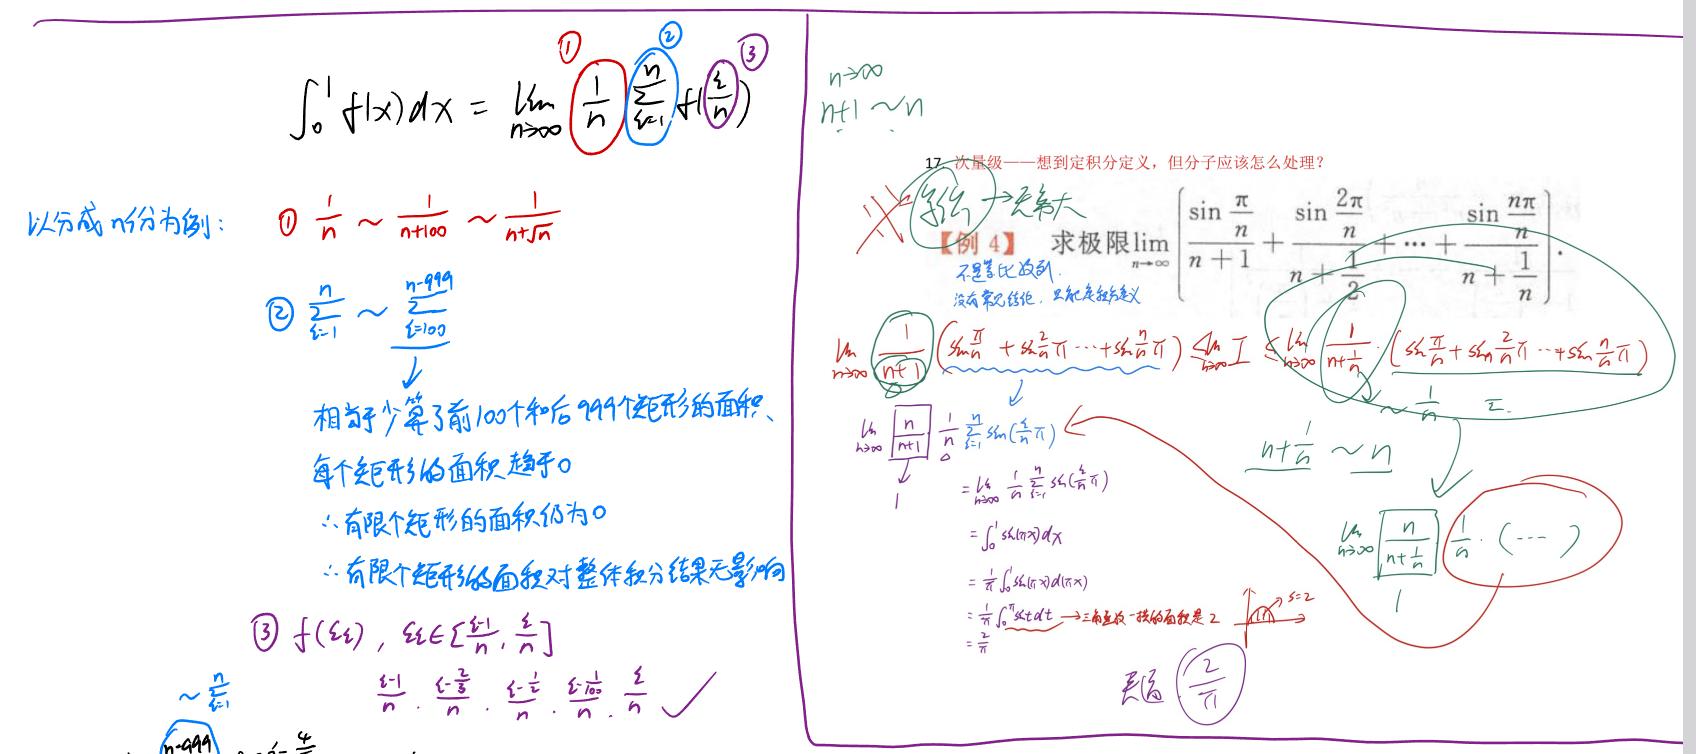 ① ② ③
∫₀¹ f(x)dx = lim n→∞ 1/n Σ i=1 n f(i/n)
以分成n份为例: ① 1/n ~ 1/(n+100) ~ 1/(n+√n)
② Σ i=1 n ~ Σ i=100 n-999
相当于少算了前100个和后999个矩形的面积、
每个矩形的面积趋于0
∴有限个矩形的面积仍为0
∴有限个矩形的面积对整体积分结果无影响
③ f(ξi), ξi∈[(i-1)/n, i/n]
~ Σ i=1 n
(i-1)/n . (i-2/3)/n . (i-1/2)/n . (i-1/100)/n . i/n ✓
n-999
n→∞
n+1 ~ n
17 次量级——想到定积分定义，但分子应该怎么处理?
→无穷大
【例 4】 求极限 lim n→∞ [ sin(π/n)/(n+1) + sin(2π/n)/(n+1/2) + ⋯ + sin(nπ/n)/(n+1/n) ].
不是等比数列.
lim n→∞ 1/(n+1) (sin π/n + sin 2/n π ⋯ + sin n/n π) ≤ lim n→∞ I ≤ lim n→∞ 1/(n+1/n) · (sin π/n + sin 2/n π ⋯ + sin n/n π)
~ 1/n Σ
lim n→∞ n/(n+1) 1/n Σ i=1 n sin(i/n π)
1
n+1/n ~ n
= lim n→∞ 1/n Σ i=1 n sin(i/n π)
= ∫₀¹ sin(πx)dx
lim n→∞ n/(n+1/n) 1/n · (⋯)
1
= 1/π ∫₀¹ sin(πx)d(πx)
= 1/π ∫₀^π sint dt → 三角函数一拱的面积是2 S=2
= 2/π
2/π